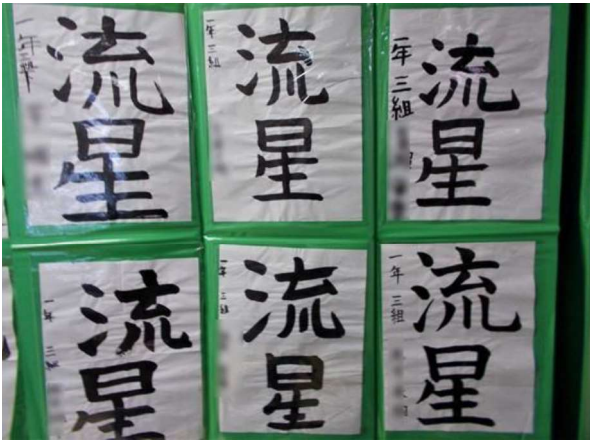 流星
一年三組
流星
一年三組
流星
一年三組
流星
一年三
流星
一年三組
流星
一年三組